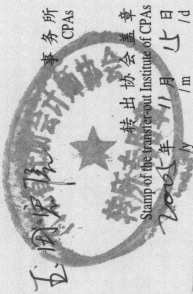 事务所
CPAs
会计师协会
转出协会盖章
Stamp of the transfer-out Institute of CPAs
2005年11月15日
/y /m /d